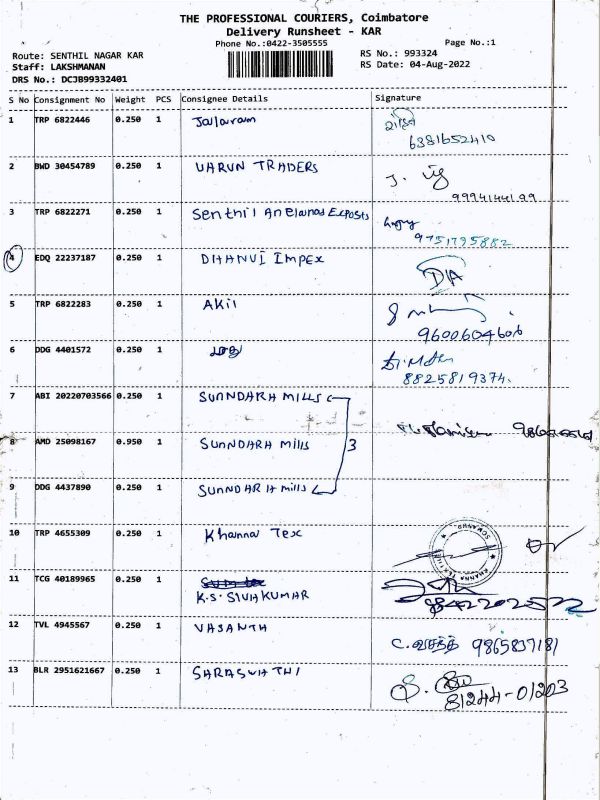 THE PROFESSIONAL COURIERS, Coimbatore
Delivery Runsheet - KAR
Phone No.:0422-3505555
Page No.:1
Route: SENTHIL NAGAR KAR
RS No.: 993324
Staff: LAKSHMANAN
RS Date: 04-Aug-2022
DRS No.: DCJB99332401
S No Consignment No Weight PCS Consignee Details Signature
1 TRP 6822446 0.250 1 Jalaram
6381652410
2 BWD 30454789 0.250 1 VARUN TRADERS
9994144199
3 TRP 6822271 0.250 1 Senthil Exposts
9751795882
4 EDQ 22237187 0.250 1 DHANVI IMPEX
5 TRP 6822283 0.250 1 AKil
9600604606
6 DDG 4401572 0.250 1 மாது
8825819374.
7 ABI 20220703566 0.250 1 SUNNDARA MILLS
8 AMD 25098167 0.950 1 SUNNDARA Mills 3
9 DDG 4437890 0.250 1 SUNNDARA Mills
10 TRP 4655309 0.250 1 Khanna Tex
11 TCG 40189965 0.250 1 K.S. SIVAKUMAR
12 TVL 4945567 0.250 1 VASANTH
C. வசந்த் 9865837181
13 BLR 2951621667 0.250 1 SARASWATHI
81244-01203